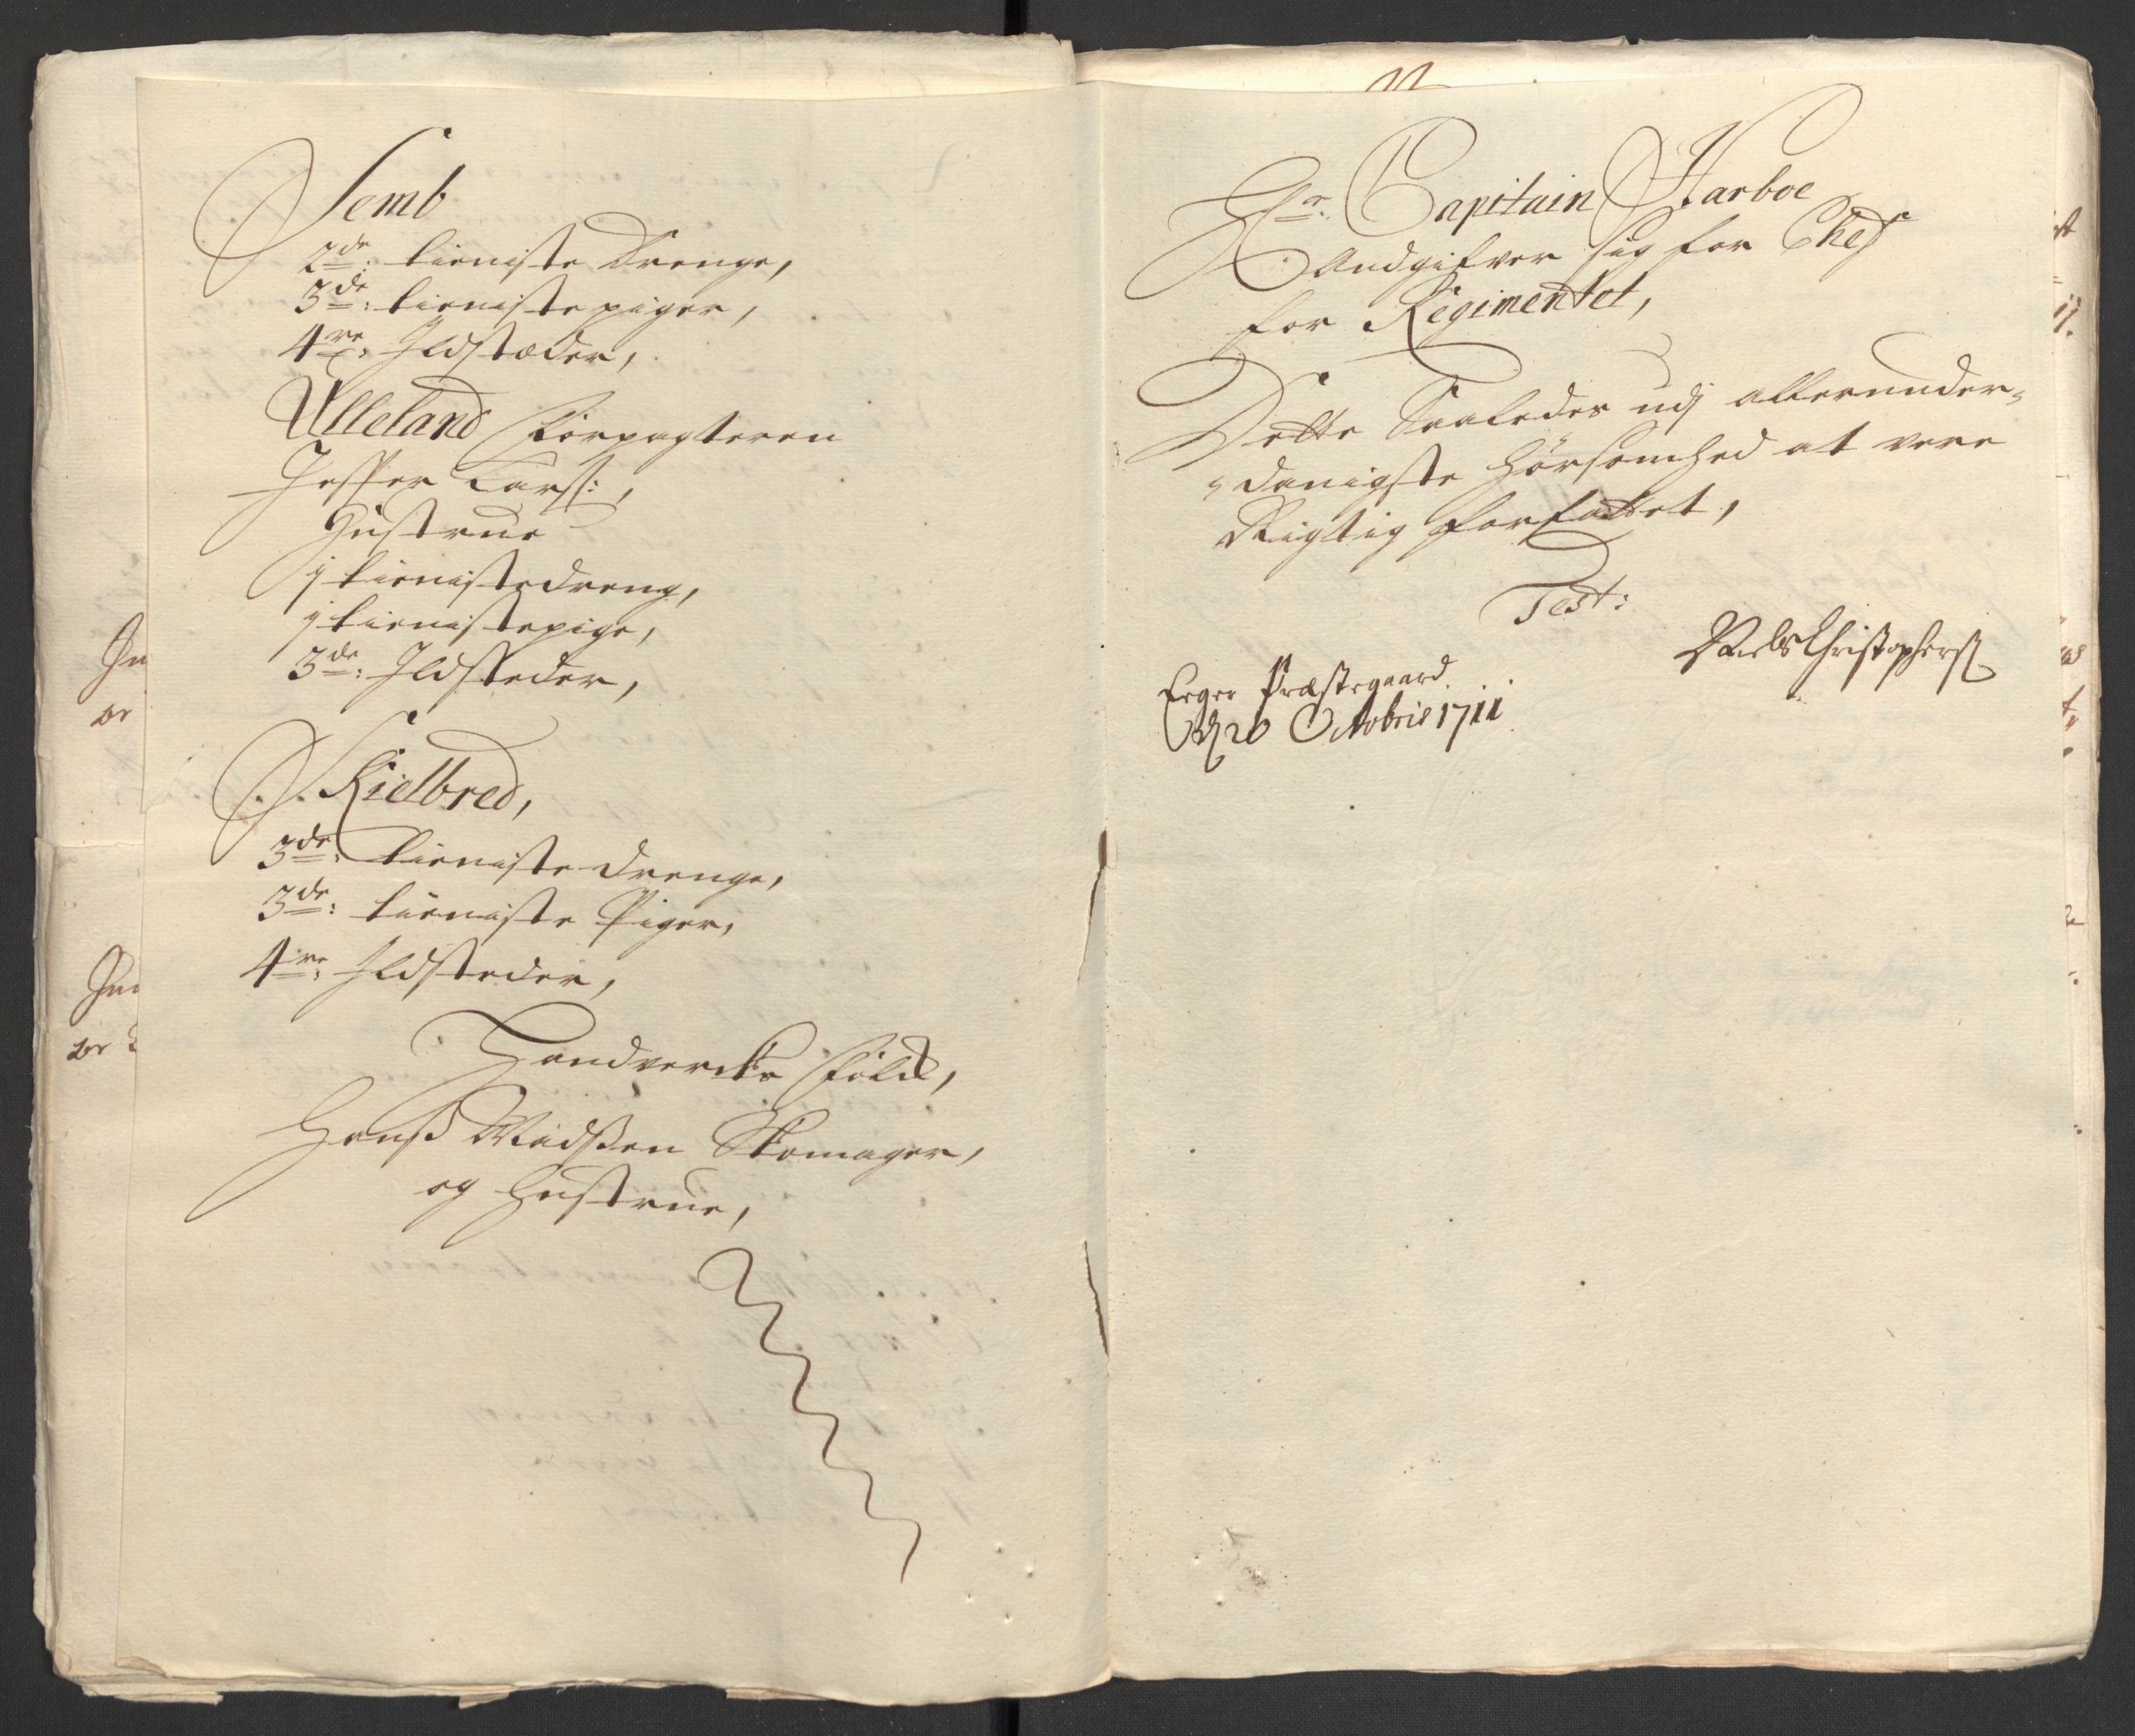 Semb
2de: tieniste drenge,
3de: tieniste piger,
4re: Ildstæder,
Ulleland Forpagteren
Jesper Larss:,
Hustrue
1 tienistedreng,
1 tienistepige,
3de: Ildsteder,
Kielbred,
3de: tieniste drenge,
3de: tieniste Piger,
4re: Ildsteder,
Handvercks folck,
Hanß Madsßen Skomager,
og Hustrue,
Hr: Capitain Harboe
Andgifver sig for Chef
for Regimentet,
Dette Saaledes udj allerunder-
danigste hørsomhed at vere
Rigtig forfattet,
Test:
Niels Christophers
Præstegaard
20 Octobris 1711